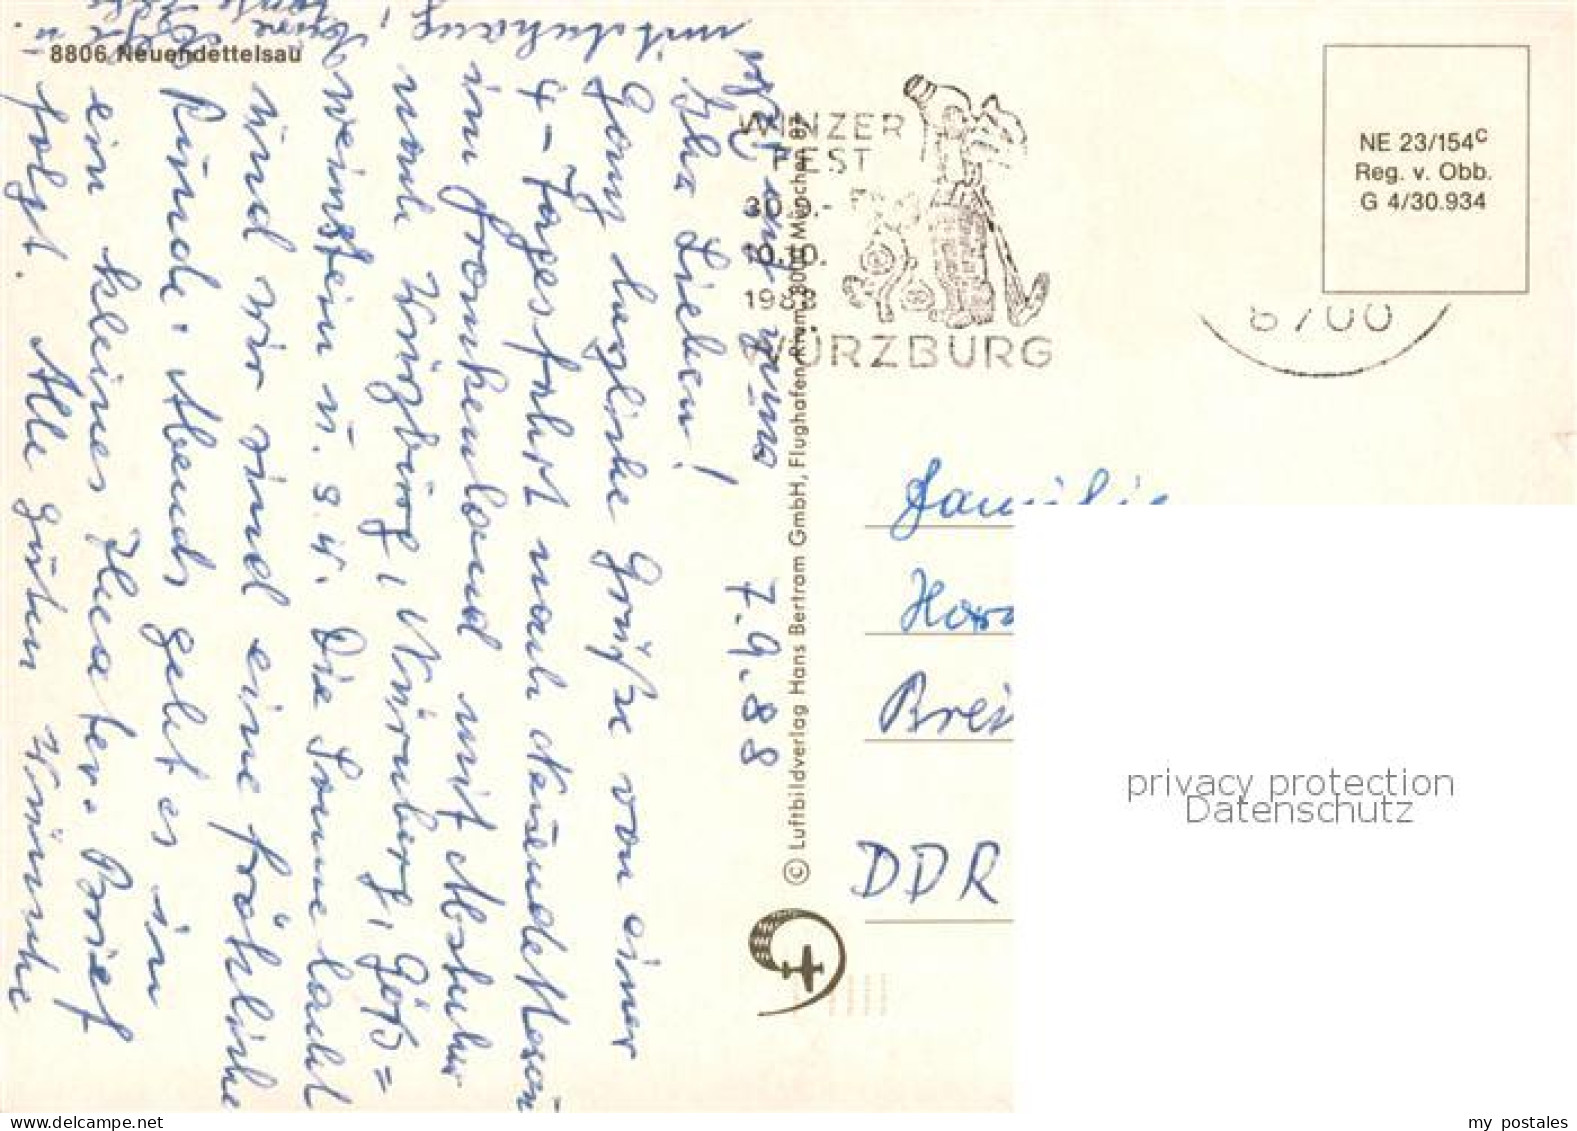 8806 Neuendettelsau
WINZER
FEST
30.9.-
10.10.
1988
WÜRZBURG
NE 23/154c
Reg. v. Obb.
G 4/30.934
8700
7.9.88
Ihr Lieben!
Ganz herzliche Grüße von einer
4-Tagesfahrt nach Neuendettelsau
im Frankenland mit Abstecher
nach Würzburg, Nürnberg, Göß=
weinstein u.s.w. Die Sonne lacht
und wir sind eine fröhliche
Runde. Abends geht es in
ein kleines Theater. Brief
folgt. Alle guten Wünsche
© Luftbildverlag Hans Bertram GmbH, Flughafen Riem, 8000 München 87
Familie
DDR
privacy protection
Datenschutz
my postales